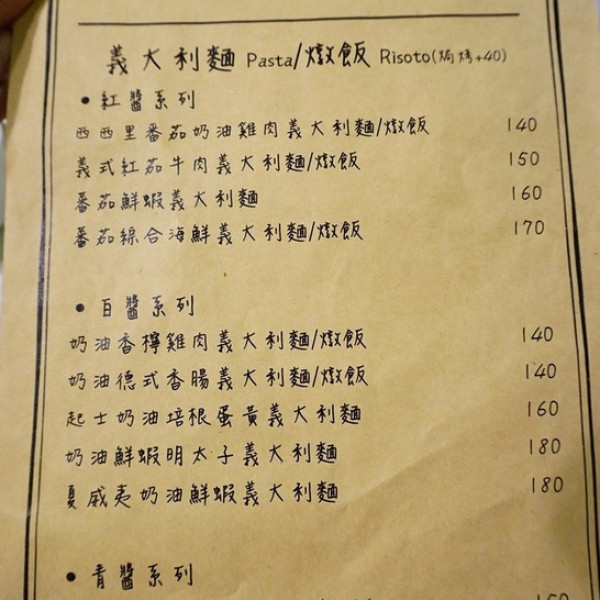 義大利麵 Pasta/燉飯 Risoto(焗烤+40)
• 紅醬系列
西西里番茄奶油雞肉義大利麵/燉飯 140
義式紅茄牛肉義大利麵/燉飯 150
番茄鮮蝦義大利麵 160
番茄綜合海鮮義大利麵/燉飯 170
• 白醬系列
奶油香檸雞肉義大利麵/燉飯 140
奶油德式香腸義大利麵/燉飯 140
起士奶油培根蛋黃義大利麵 160
奶油鮮蝦明太子義大利麵 180
夏威夷奶油鮮蝦義大利麵 180
• 青醬系列